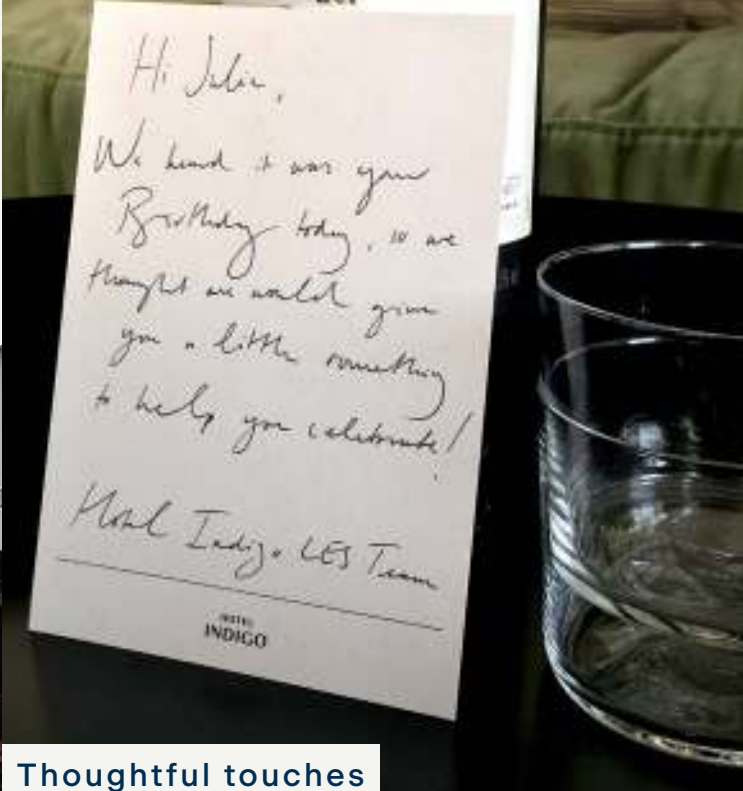 Hi Julie,
We heard it was your
Birthday today, so we
thought we would give
you a little something
to help you celebrate!
Hotel Indigo LES Team
HOTEL
INDIGO
Thoughtful touches